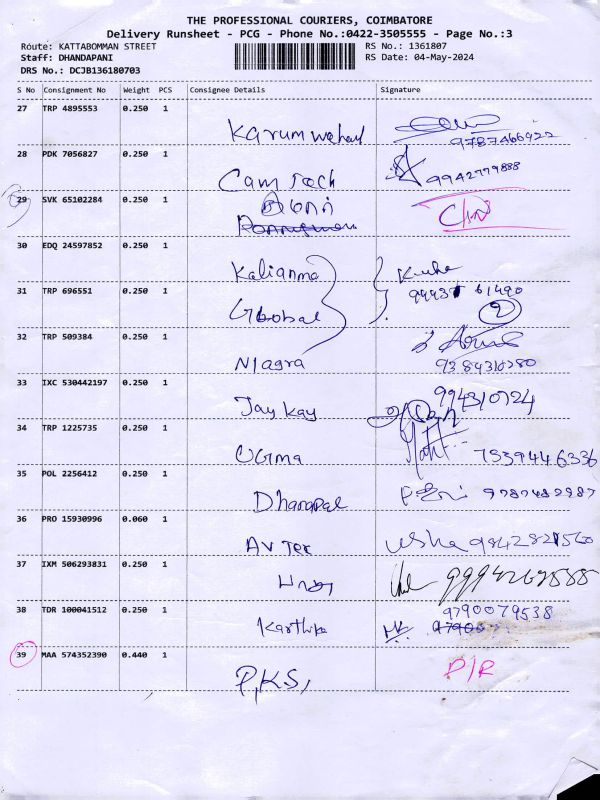 THE PROFESSIONAL COURIERS, COIMBATORE
Delivery Runsheet - PCG - Phone No.:0422-3505555 - Page No.:3
Route: KATTABOMMAN STREET
Staff: DHANDAPANI
DRS No.: DCJB136180703
RS No.: 1361807
RS Date: 04-May-2024
S No Consignment No Weight PCS Consignee Details Signature
27 TRP 4895553 0.250 1
9787466922
28 PDK 7056827 0.250 1
Cam Tech 9942779888
29 SVK 65102284 0.250 1
30 EDQ 24597852 0.250 1
Kalianma
31 TRP 696551 0.250 1
Global
2
32 TRP 509384 0.250 1
Niagra 9384310280
33 IXC 530442197 0.250 1
Jay Kay 994310724
34 TRP 1225735 0.250 1
7539446336
35 POL 2256412 0.250 1
Dhanapal 9787482987
36 PRO 15930996 0.060 1
AV Tex usha
37 IXM 506293831 0.250 1
9994269588
38 TDR 100041512 0.250 1
Karthika 9790079538
39 MAA 574352390 0.440 1
P,KS, D/R